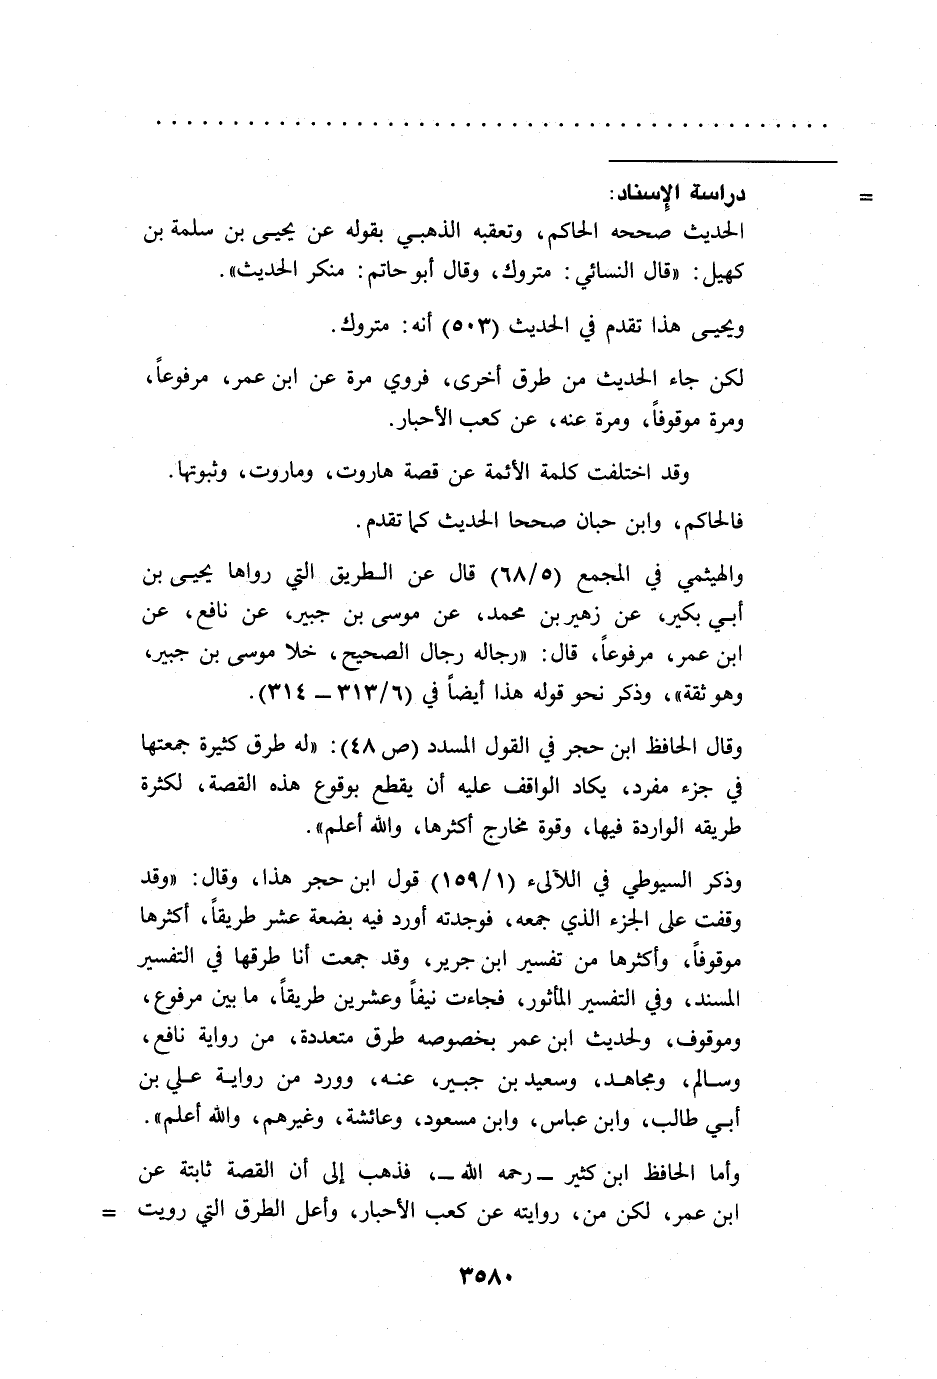 . . . . . . . . . . . . . . . . . . . . . . . . . . . . . . . . . . . . . . . . . . . .
= دراسة الإسناد:
الحديث صححه الحاكم، وتعقبه الذهبـي بقوله عن يحيـى بن سلمة بن
كهيل: «قال النسائي: متروك، وقال أبو حاتم: منكر الحديث».
ويحيـى هذا تقدم في الحديث (٥٠٣) أنه: متروك.
لكن جاء الحديث من طرق أخرى، فروي مرة عن ابن عمر، مرفوعاً،
ومرة موقوفاً، ومرة عنه، عن كعب الأحبار.
وقد اختلفت كلمة الأئمة عن قصة هاروت، وماروت، وثبوتها.
فالحاكم، وابن حبان صححا الحديث كما تقدم.
والهيثمي في المجمع (٦٨/٥) قال عن الـطريق التي رواها يحيـى بن
أبـي بكير، عن زهير بن محمد، عن موسى بن جبير، عن نافع، عن
ابن عمر، مرفوعاً، قال: «رجاله رجال الصحيح، خلا موسى بن جبير،
وهو ثقة»، وذكر نحو قوله هذا أيضاً في (٣١٣/٦ ـ ٣١٤).
وقال الحافظ ابن حجر في القول المسدد (ص ٤٨): «له طرق كثيرة جمعتها
في جزء مفرد، يكاد الواقف عليه أن يقطع بوقوع هذه القصة، لكثرة
طريقه الواردة فيها، وقوة مخارج أكثرها، والله أعلم».
وذكر السيوطي في اللآلىء (١٥٩/١) قول ابن حجر هذا، وقال: «وقد
وقفت على الجزء الذي جمعه، فوجدته أورد فيه بضعة عشر طريقاً، أكثرها
موقوفاً، وأكثرها من تفسير ابن جرير، وقد جمعت أنا طرقها في التفسير
المسند، وفي التفسير المأثور، فجاءت نيفاً وعشرين طريقاً، ما بين مرفوع،
وموقوف، ولحديث ابن عمر بخصوصه طرق متعددة، من رواية نافع،
وسـالم، ومجاهـد، وسعيد بن جبـير، عنـه، وورد من روايـة عـلي بن
أبـي طالب، وابن عباس، وابن مسعود، وعائشة، وغيرهم، والله أعلم».
وأما الحافظ ابن كثير ـ رحمه الله ـ، فذهب إلى أن القصة ثابتة عن
ابن عمر، لكن من، روايته عن كعب الأحبار، وأعل الطرق التي رويت =
٣٥٨٠